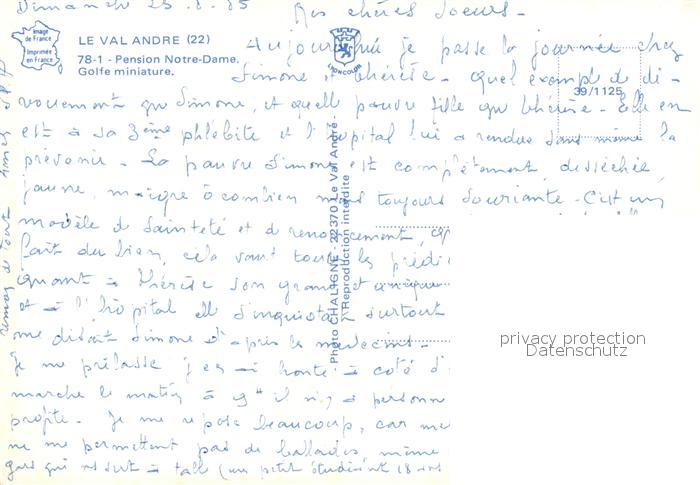 Dimanche 25-8-85
Mes chères Soeurs-
Image de France
Imprimée en France
LE VAL ANDRE (22)
78-1 - Pension Notre-Dame.
Golfe miniature.
LYONCOLOR
39/1125
Photo CHALIGNE - 22370 Le Val André -
Reproduction interdite
Aujourd'hui je passe la journée chez
Simone et Thérèse - quel exemple de dé-
vouement que Simone, et quelle pauvre fille que Thérèse - Elle en
est à sa 3ème phlébite et l'hôpital lui a rendue sans même la
prévenir - La pauvre Simone est complètement desséchée,
jaune, maigre ô combien mais toujours souriante - C'est un
modèle de sainteté et de renoncement,
fait du bien, cela vaut toutes les
quant à Thérèse son grand et unique
et à l'hôpital elle s'inquiétait surtout
me disait Simone d'après les médecins -
Je me prélasse j'en ai honte à côté d'
marche le matin à 9h il n'y a personne
profite - Je me repose beaucoup, car
ne me permettent pas de ballades, même
gars qui ressert à table (un petit étudiant 18 ans
privacy protection
Datenschutz